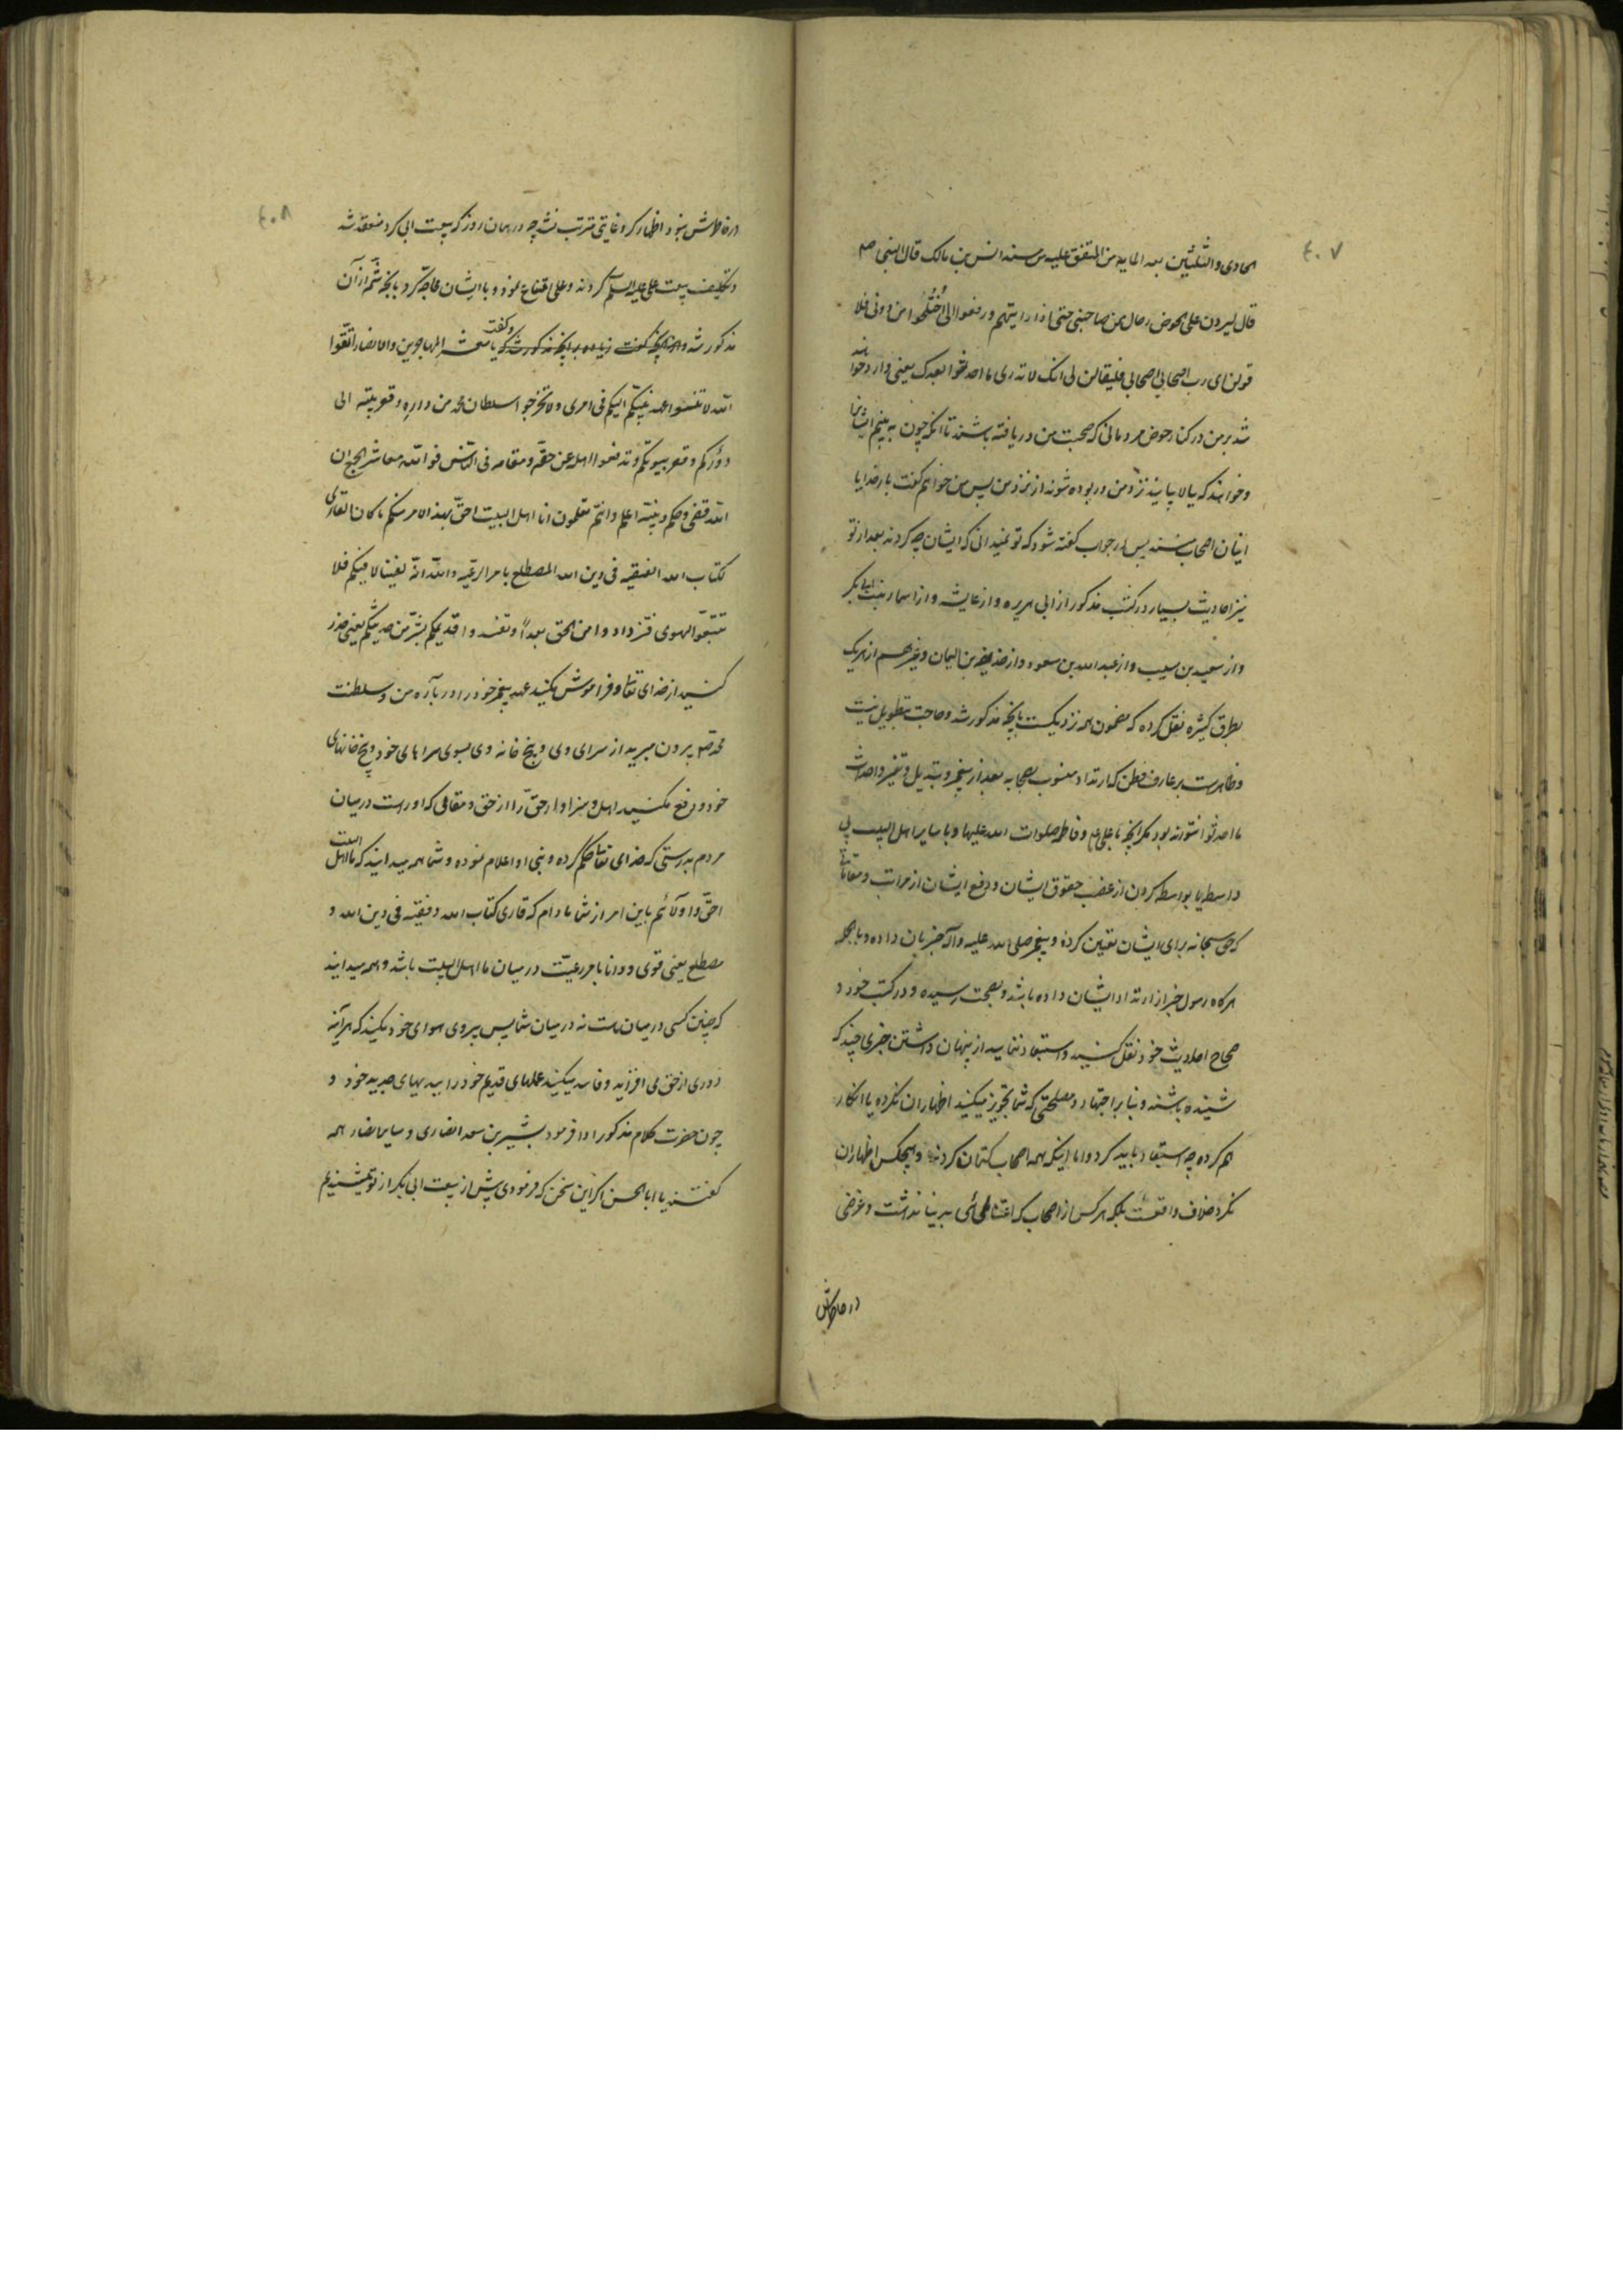 ۴۰۷
الحادی والثلثین بعد المایه من المتفق علیه من مسند انس بن مالک قال النبی صم
قال لیردن علی الحوض رجال ممن صاحبنی حتی اذا رایتهم ورفعوا الی اُختُلجوا من دونی فلا
قولن ای رب اصحابی اصحابی فلیقالن لی انک لا تدری ما احدثوا بعدک یعنی وارد خواهند
شد بر من در کنار حوض مردمانی که صحبت من دریافته باشند تا انکه چون به بینم ایشانرا
وخواهند که بالا بیایند نزد من در ربوده شوند از نزد من پس من خواهم گفت بار خدایا
اینان اصحاب منند پس در جواب گفته شود که تو نمیدانی که ایشان چه کردند بعد از تو
نیز احادیث بسیار در کتب مذکور از ابی هریره و از عایشه و از اسماء بنت ابی بکر
و از سعید بن مسیب و از عبد الله بن مسعود و از حذیفه بن الیمان و غیرهم از هر یک
بطرق کثیره نقل کرده که مضمون همه نزدیکست بآنچه مذکور شد و حاجت بتطویل نیست
وظاهرست بر عارف فطن که ارتداد منسوب بصحابه بعد از پیغمبر و تبدیل و تغیر و احداث
ما احدثوا نتواند بود مگر آنچه با علی ع و فاطمه صلوات الله علیها و با سایر اهل البیت بی
واسطه یا بواسطه کردن از غصب حقوق ایشان و دفع ایشان از مراتب و مقاماتی
که حق سبحانه برای ایشان تعیین کرده و پیغمبر صلی الله علیه وآله خبر بآن داده و بالجمله
هرگاه رسول خبر از ارتداد ایشان داده باشد و بصحت رسیده و در کتب خود و
صحاح احادیث خود نقل کنید و استبعاد ننمایید از پنهان داشتن خبری چند که
شنیده باشند و بنا بر اجتهاد و مصلحتی که شما تجویز میکنید اظهار ان نکرده یا انکار
هم کرده چه استبعاد باید کرد و اما اینکه همه اصحاب کتمان کردند و هیچکس اظهار ان
نکرد خلاف واقعست بلکه هر کس از اصحاب که اعتنائی بدنیا نداشت و غرضی
در خاطرش
۴۰۸
در خاطرش نبود اظهار کرد غایتی مترتب نشد چه در همان روز که بیعت ابی بکر منعقد شد
وتکلیف بیعت علی علیه السلم کردند و علی امتناع نمود و با ایشان محاجه کرد بآنچه شمه از آن
مذکور شد و گفت یا معشر المهاجرین والانصار اتقوا
الله لا تنسوا عهد نبیکم الیکم فی امری ولا تخرجوا سلطان محمد من داره وقعر بیته الی
دورکم وقعر بیوتکم وتدفعوا اهله عن حقه ومقامه فی الناس فوالله معاشر الجمع ان
الله قضی وحکم ونبیه اعلم وانتم تعلمون انا اهل البیت احق بهذا الامر منکم ما کان القاری
لکتاب الله الفقیه فی دین الله المضطلع بامر الرعیه والله انه لفینا لا فیکم فلا
تتبعوا الهوی فتزدادوا من الحق بعداً وتفسدوا قدیمکم بشر من حدیثکم یعنی حذر
کنید از خدای تعالی و فراموش مکنید عهد پیغمبر خود را در باره من و سلطنت
محمد صم بیرون مبرید از سرای وی و بیخ خانه وی بسوی سراهای خود و بیخ خانهای
خود و دفع مکنید اهل و سزاوار حق را از حق و مقامی که اوراست در میان
مردم بدرستی که خدای تعالی حکم کرده و نبی او اعلام نموده و شما همه میدانید که ما اهل البیت
احق و اولائیم باین امر از شما مادام که قاری کتاب الله و فقیه فی دین الله و
مضطلع یعنی قوی و دانا بامر رعیت در میان ما اهل البیت باشد و همه میدانید
که چنین کسی در میان ماست نه در میان شما پس پیروی هوای خود مکنید که هرآینه
دوری از حق می افزاید و فاسد میکنید عملهای قدیم خود را ببدیهای جدید خود و
چون حضرت کلام مذکور ادا فرمود بشیر بن سعد انصاری و سایر انصار همه
گفتند یا ابا الحسن اگر این سخن که فرمودی پیش از بیعت ابی بکر از تو میشنیدیم